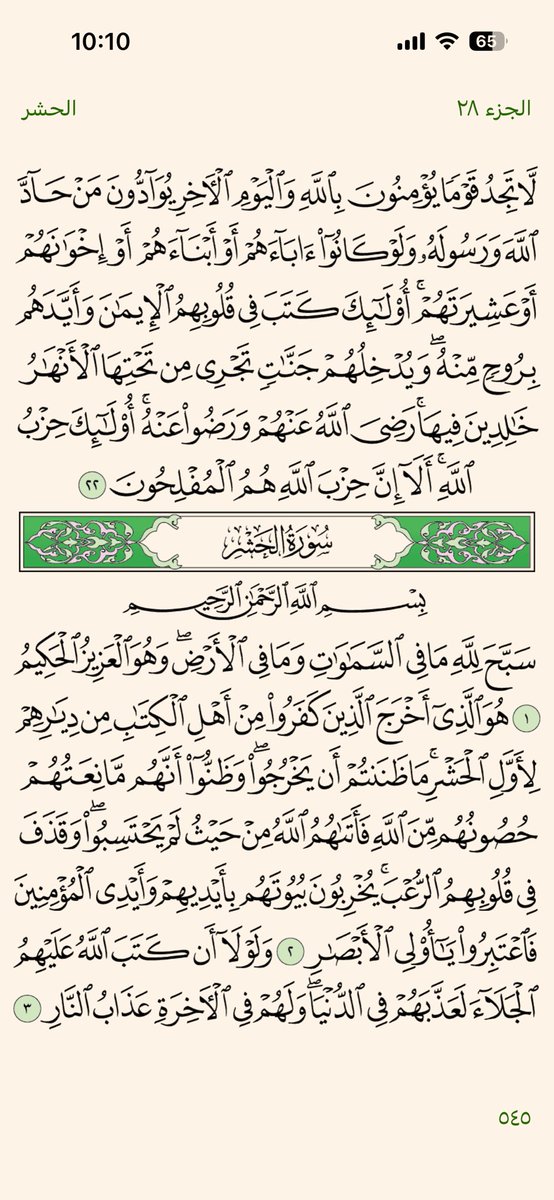 10:10
65
الجزء ٢٨
الحشر
لَّا تَجِدُ قَوْمًا يُؤْمِنُونَ بِٱللَّهِ وَٱلْيَوْمِ ٱلْـَٔاخِرِ يُوَآدُّونَ مَنْ حَآدَّ
ٱللَّهَ وَرَسُولَهُۥ وَلَوْ كَانُوٓا۟ ءَابَآءَهُمْ أَوْ أَبْنَآءَهُمْ أَوْ إِخْوَٰنَهُمْ
أَوْ عَشِيرَتَهُمْ ۚ أُو۟لَـٰٓئِكَ كَتَبَ فِى قُلُوبِهِمُ ٱلْإِيمَـٰنَ وَأَيَّدَهُم
بِرُوحٍ مِّنْهُ ۖ وَيُدْخِلُهُمْ جَنَّـٰتٍ تَجْرِى مِن تَحْتِهَا ٱلْأَنْهَـٰرُ
خَـٰلِدِينَ فِيهَا ۚ رَضِىَ ٱللَّهُ عَنْهُمْ وَرَضُوا۟ عَنْهُ ۚ أُو۟لَـٰٓئِكَ حِزْبُ
ٱللَّهِ ۚ أَلَآ إِنَّ حِزْبَ ٱللَّهِ هُمُ ٱلْمُفْلِحُونَ ٢٢
سُورَةُ الحَشْرِ
بِسْمِ ٱللَّهِ ٱلرَّحْمَـٰنِ ٱلرَّحِيمِ
سَبَّحَ لِلَّهِ مَا فِى ٱلسَّمَـٰوَٰتِ وَمَا فِى ٱلْأَرْضِ ۖ وَهُوَ ٱلْعَزِيزُ ٱلْحَكِيمُ
١ هُوَ ٱلَّذِىٓ أَخْرَجَ ٱلَّذِينَ كَفَرُوا۟ مِنْ أَهْلِ ٱلْكِتَـٰبِ مِن دِيَـٰرِهِمْ
لِأَوَّلِ ٱلْحَشْرِ ۚ مَا ظَنَنتُمْ أَن يَخْرُجُوا۟ ۖ وَظَنُّوٓا۟ أَنَّهُم مَّانِعَتُهُمْ
حُصُونُهُم مِّنَ ٱللَّهِ فَأَتَىٰهُمُ ٱللَّهُ مِنْ حَيْثُ لَمْ يَحْتَسِبُوا۟ ۖ وَقَذَفَ
فِى قُلُوبِهِمُ ٱلرُّعْبَ ۚ يُخْرِبُونَ بُيُوتَهُم بِأَيْدِيهِمْ وَأَيْدِى ٱلْمُؤْمِنِينَ
فَٱعْتَبِرُوا۟ يَـٰٓأُو۟لِى ٱلْأَبْصَـٰرِ ٢ وَلَوْلَآ أَن كَتَبَ ٱللَّهُ عَلَيْهِمُ
ٱلْجَلَآءَ لَعَذَّبَهُمْ فِى ٱلدُّنْيَا ۖ وَلَهُمْ فِى ٱلْـَٔاخِرَةِ عَذَابُ ٱلنَّارِ ٣
٥٤٥